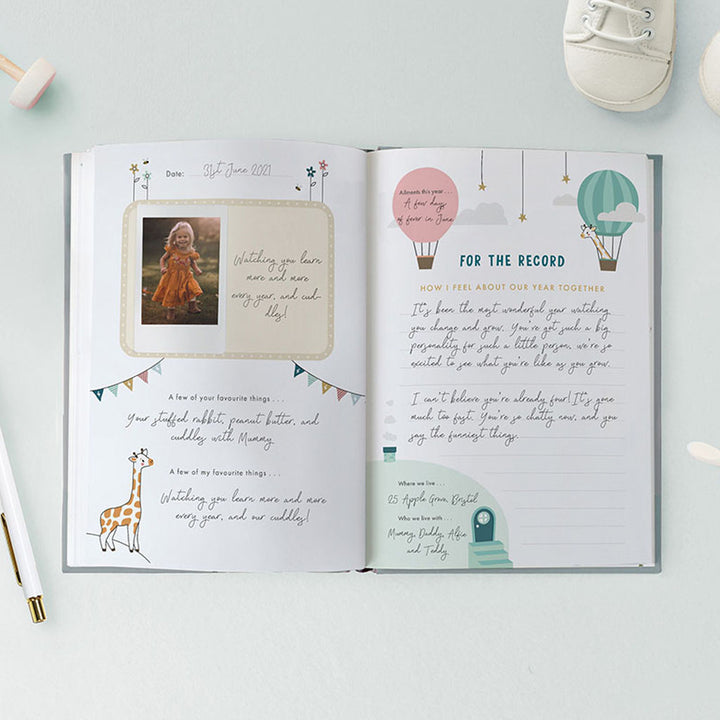 Date: 31st June 2021
Watching you learn
more and more
every year, and cud-
dles!
A few of your favourite things . . .
Your stuffed rabbit, peanut butter, and
cuddles with Mummy
A few of my favourite things . . .
Watching you learn more and more
every year, and our cuddles!
Ailments this year . . .
A few days
of fever in June
FOR THE RECORD
HOW I FEEL ABOUT OUR YEAR TOGETHER
It's been the most wonderful year watching
you change and grow. You've got such a big
personality for such a little person, we're so
excited to see what you're like as you grow.
I can't believe you're already four! It's gone
much too fast. You're so chatty now, and you
say the funniest things.
Where we live . . .
25 Apple Grove, Bristol
Who we live with . . .
Mummy, Daddy, Alfie
and Teddy